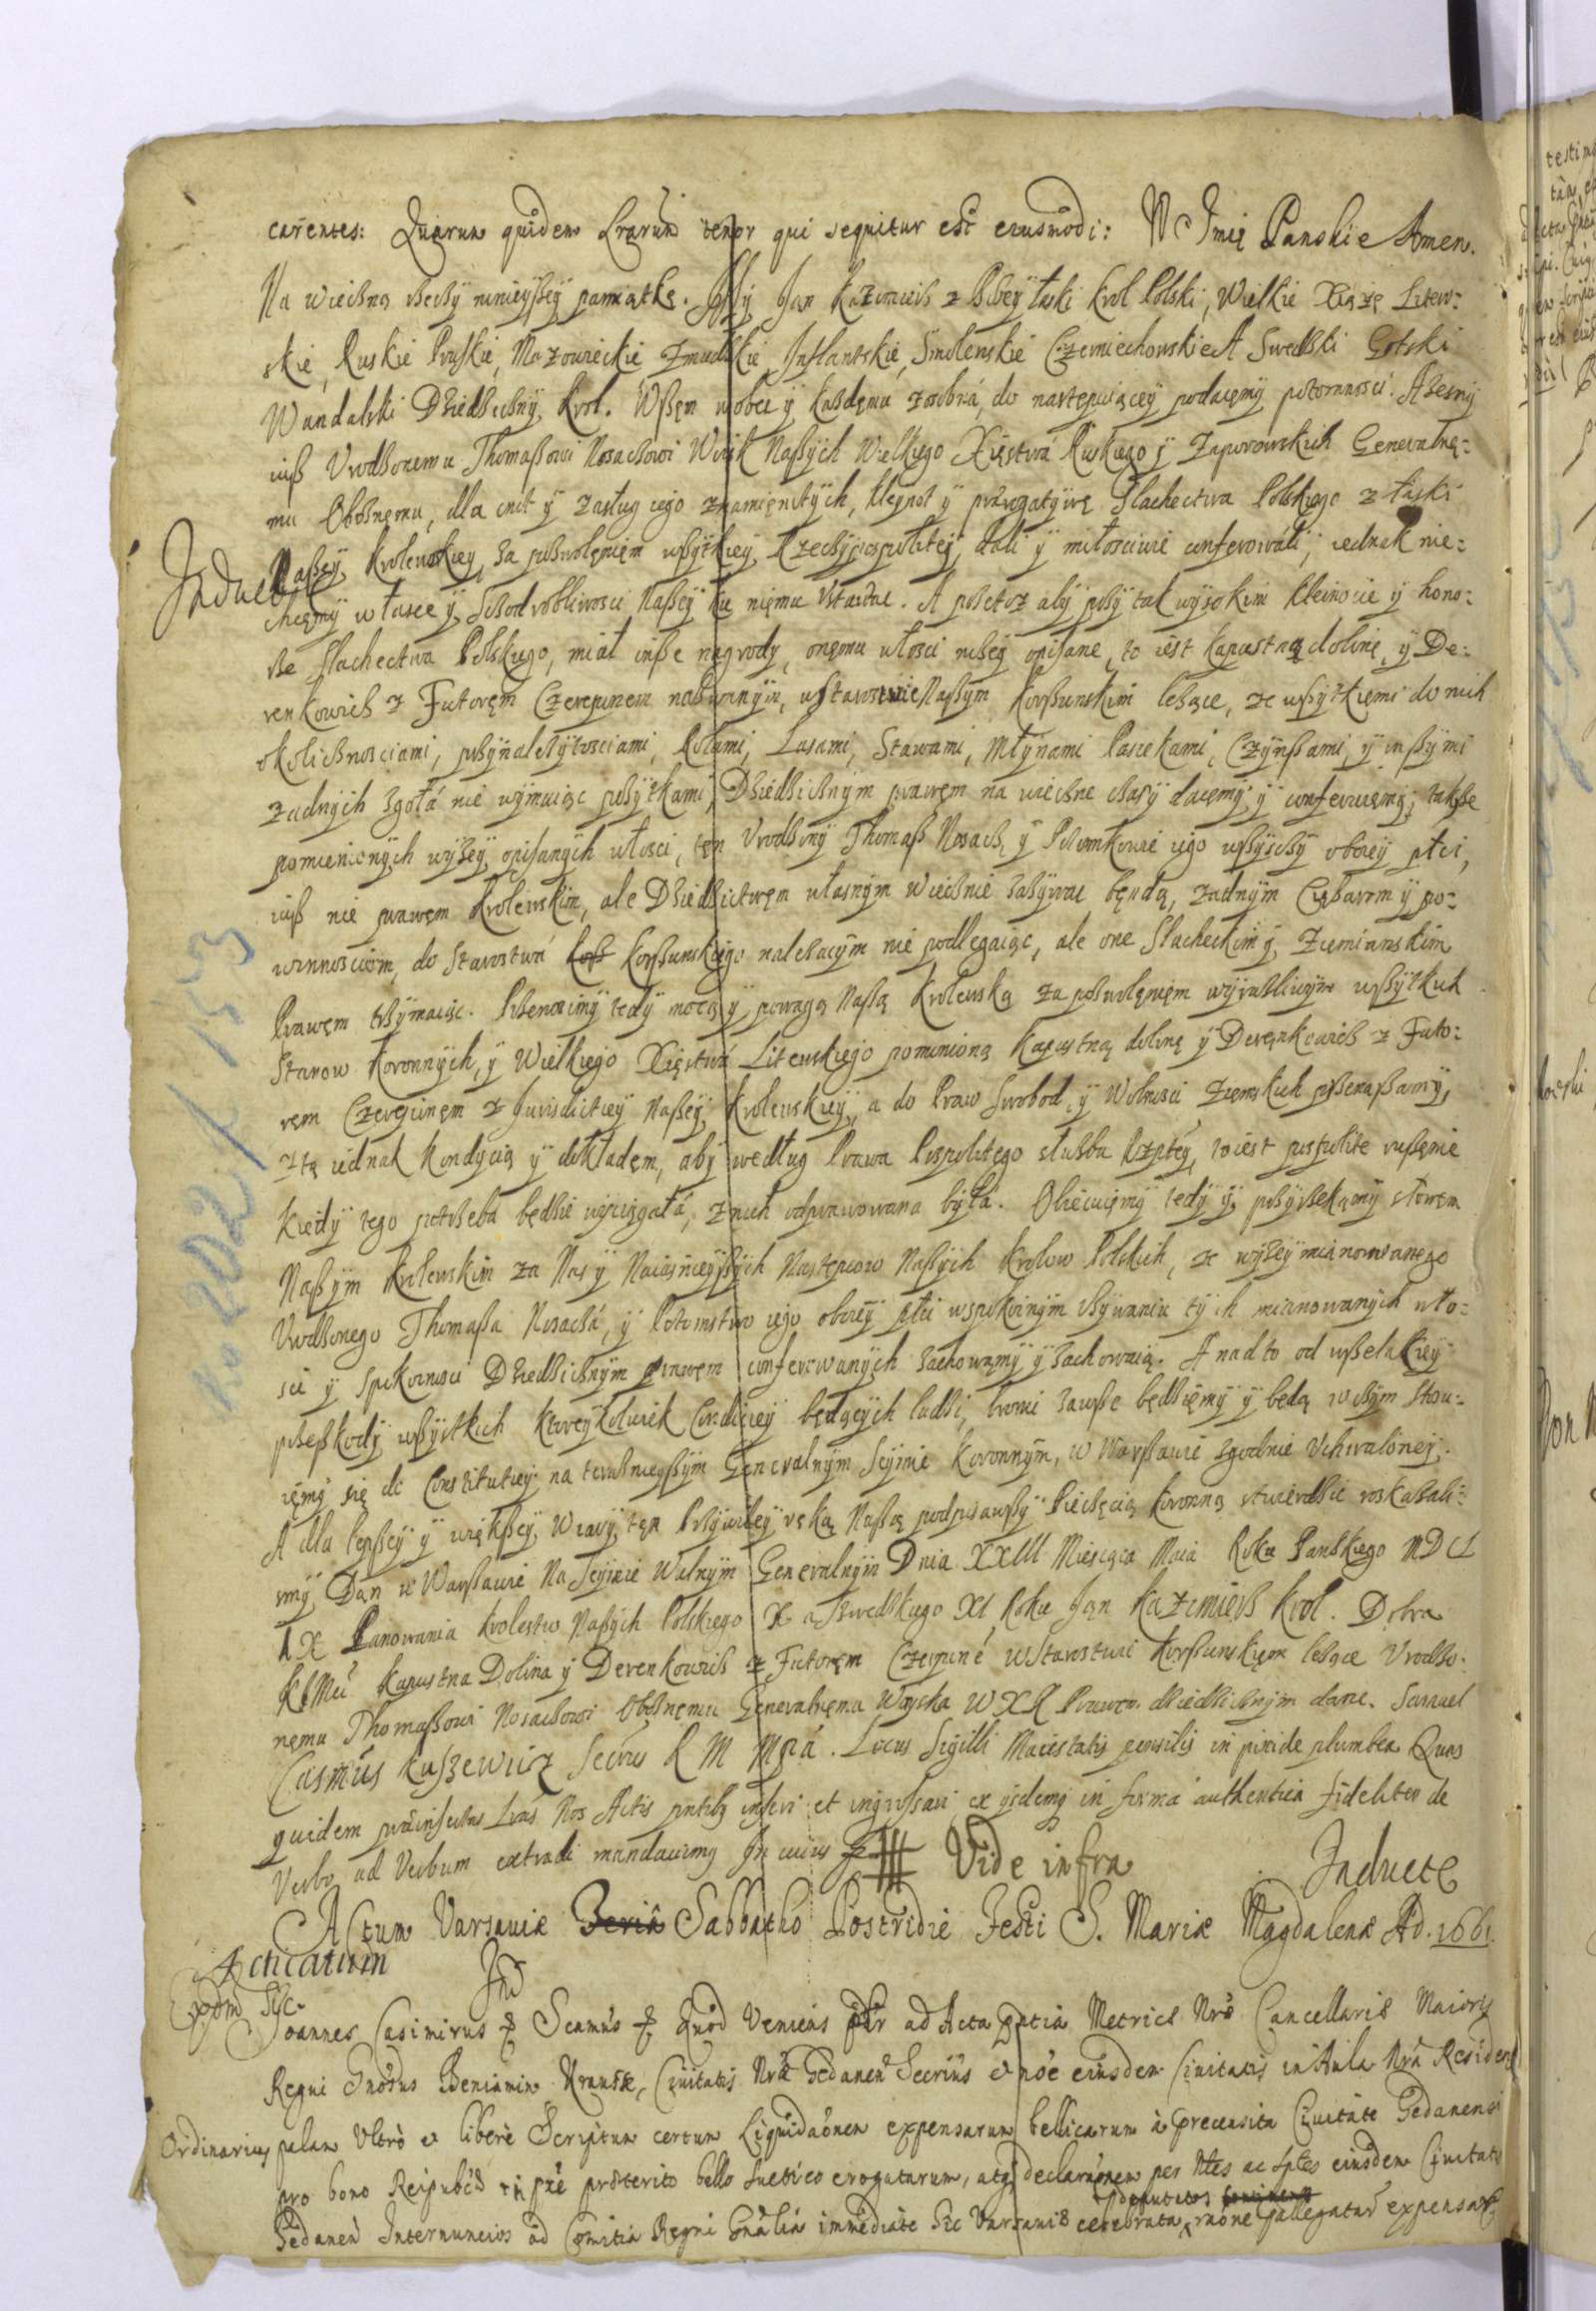 carentes: Quarum quidem Lrarum tenor qui sequitur est eiusmodi: W Imię Panskie Amen.
Na wieczną rzeczy ninieyszey pamiątkę. My Jan Kazimierz z Bożey łaski Krol Polski, Wielkie Xiążę Litew:
skie, Ruskie Pruskie, Mazowieckie Zmudzkie, Inflantskie, Smolenskie Czerniechowskie A Swedski Gotski
Wandalski Dziedziczny Krol. Wszem wobec y każdemu zosobná, do nastempuiącey podaiemy potomnosci. Iżesmy
iusz Urodzonemu Thomaszowi Nosaczowi Woisk Naszych Wielkiego Xięstwá Ruskiego y Zaporowskich Generalne:
mu Oboznemu, dla cnot y zasług iego znamienitych, kleynot y prærogatywę Slachectwa Polskiego z łaski
Naszey Krolewskiey za pozwoleniem wszytkiey Rzeczypospolitey dali y miłosciwie conferowali; iednak nie:
Inducte
chcemy w łasce y Szczodrobliwosci Naszey ku niemu ustawac. A przetoz aby przy tak wysokim kleinocie y hono:
rze Slachectwa Polskiego, miał insze nagrody, onemu włosci niżey opisane, to iest Kapustną dolinę, y De:
renkowicz z Futorem Czerepinem nazwanym, w Starostwie Naszym Korsunskim leżące, ze wszytkiemi do nich
okolicznosciami, przynaleźytosciami, Rolami, Lasami, Stawami, Młynami Pasiekami, Czynszami, y inszymi
zadnych zgołá nie wymuiąc pożytkami, Dziedzicznym prawem na wieczne czasy daiemy y conferuiemy; także
pomienionych wyżey opisanych włosci, ten Urodzony Thomasz Nosacz y Potomkowie iego wszyscy oboiey płci,
iusz nie prawem Krolewskim, ale Dziedzictwem własnym wiecznie zażywac będą, żadnym Ciężarom y po:
winnosciom, do Starostwá Korsunskiego należacym nie podlegaiąc, ale one Slacheckim y Ziemianskim
Prawem trzymaiąc. Przenosimy tedy mocą y powagą Naszą Krolewską za pozwoleniem wyrazliwym wszytkich
Stanow Koronnych, y Wielkiego Xięstwá Litewskiego pomienioną Kapustną dolinę y Derenkowicz z Futo:
rem Czerepinem z Jurisdictiey Naszey Krolewskiey, a do Praw Swobod, y Wolnosci Ziemskich przenaszamy,
z tą iednak Kondycią y dokładem, aby według Prawa Pospolitego służba Rzptey, to iest pospolite ruszenie
kiedy tego potrzeba będzie wyciągałá, z nich odprawowana byłá. Obiecuiemy tedy y przyrzekamy słowem
Naszym Krolewskim za Nas y Naiasnieyszych Nastempcow Naszych Krolow Polskich, że wyżey mianowanego
Urodzonego Thomasza Nosaczá, y Potomstwo iego oboiey płci w spokoinym używaniu tych mianowanych wło:
sci y spokoinosci Dziedzicznym prawem conferowanych zachowamy y zachowaią. A nad to od wszelakiey
przeszkody wszystkich ktoreykolwiek Condiciey będących ludzi, bronic zawsze będziemy y będą w czym stosu:
iemy się do Constitutiey na teraznieyszym Generalnym Seymie Koronnym, w Warszawie zgodnie Uchwaloney.
A dla lepszey y większey Wiary, ten Przywiley ręką Naszą podpisawszy Pieczęcią koronną stwierdzic roskazali:
smy Dan w Warszawie Na Seymie Walnym Generalnym Dnia XXIII Miesiąca Maia Roku Panskiego MDCL
IX Panowania Krolestw Naszych Polskiego X a Szwedzkiego XI Roku Jan Kazimierz Krol. Dobra
Kapustna Dolina y Derenkowicz z Futorem Czerepiné w Starostwie Korsunskiem leżące Urodzo:
nemu Thomaszowi Nosaczowi Oboznemu Generalnemu Woyska W X R Prawem dziedzicznym dane. Samuel
Casimirus Kuszewicz Secrius R M mpiá. Locus Sigilli Maiestatis pensilis in pixide plumbea Quas
quidem præinsertas Lras Nos Actis pntibg inseri et ingrossari ex ijsdemq in forma authentica fideliter de
Verbo ad Verbum extradi mandavimg In cuius Vide infra
Inducte
Actum Varsaviæ Feriâ Sabbatho Postridie Festi S. Mariæ Magdalenæ Ad. 1661.
Acticatum
Ind
Joannes Casimirus Scamus Quod Veniens ad Acta pntia Metrices Nræ Cancellariæ Maioris
Regni Gnosus Beniamin Krauze, Civitatis Nræ Gedanen Secrius et noe eiusdem Civitatis in Aula Nrâ Residens
Ordinarius palam Ultrò et liberè Scriptum certum Liquidaonem expensarum bellicarum à præcensita Civitate Gedanensi
pro bono Reipubcæ in præterito bello Suetico erogatarum, atq declaraonem per Ntes ac Sptes eiusdem Civitatis
Deputatos
Gedanen Internuncios ad Comitia Regni Gnalia immediatè hic Varsaviæ celebrata, raone expensarum